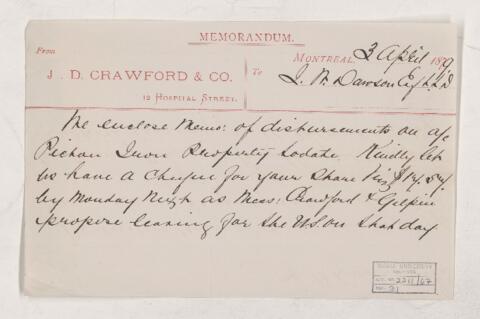 MEMORANDUM.
From
J. D. CRAWFORD & CO.
12 HOSPITAL STREET.
MONTREAL, 3 April 1879
To J. W. Dawson Esq L.L.D
We enclose Memo: of disbursements on a/c
Pictou Iron Property to date. Kindly let
us have a Cheque for your Share Viz
by Monday next as Mess: Crawford & Gilpin
propose leaving for the U.S. on that day
McGILL UNIVERSITY
ARCHIVES
ACC. NO. 2211/67
REF. 31